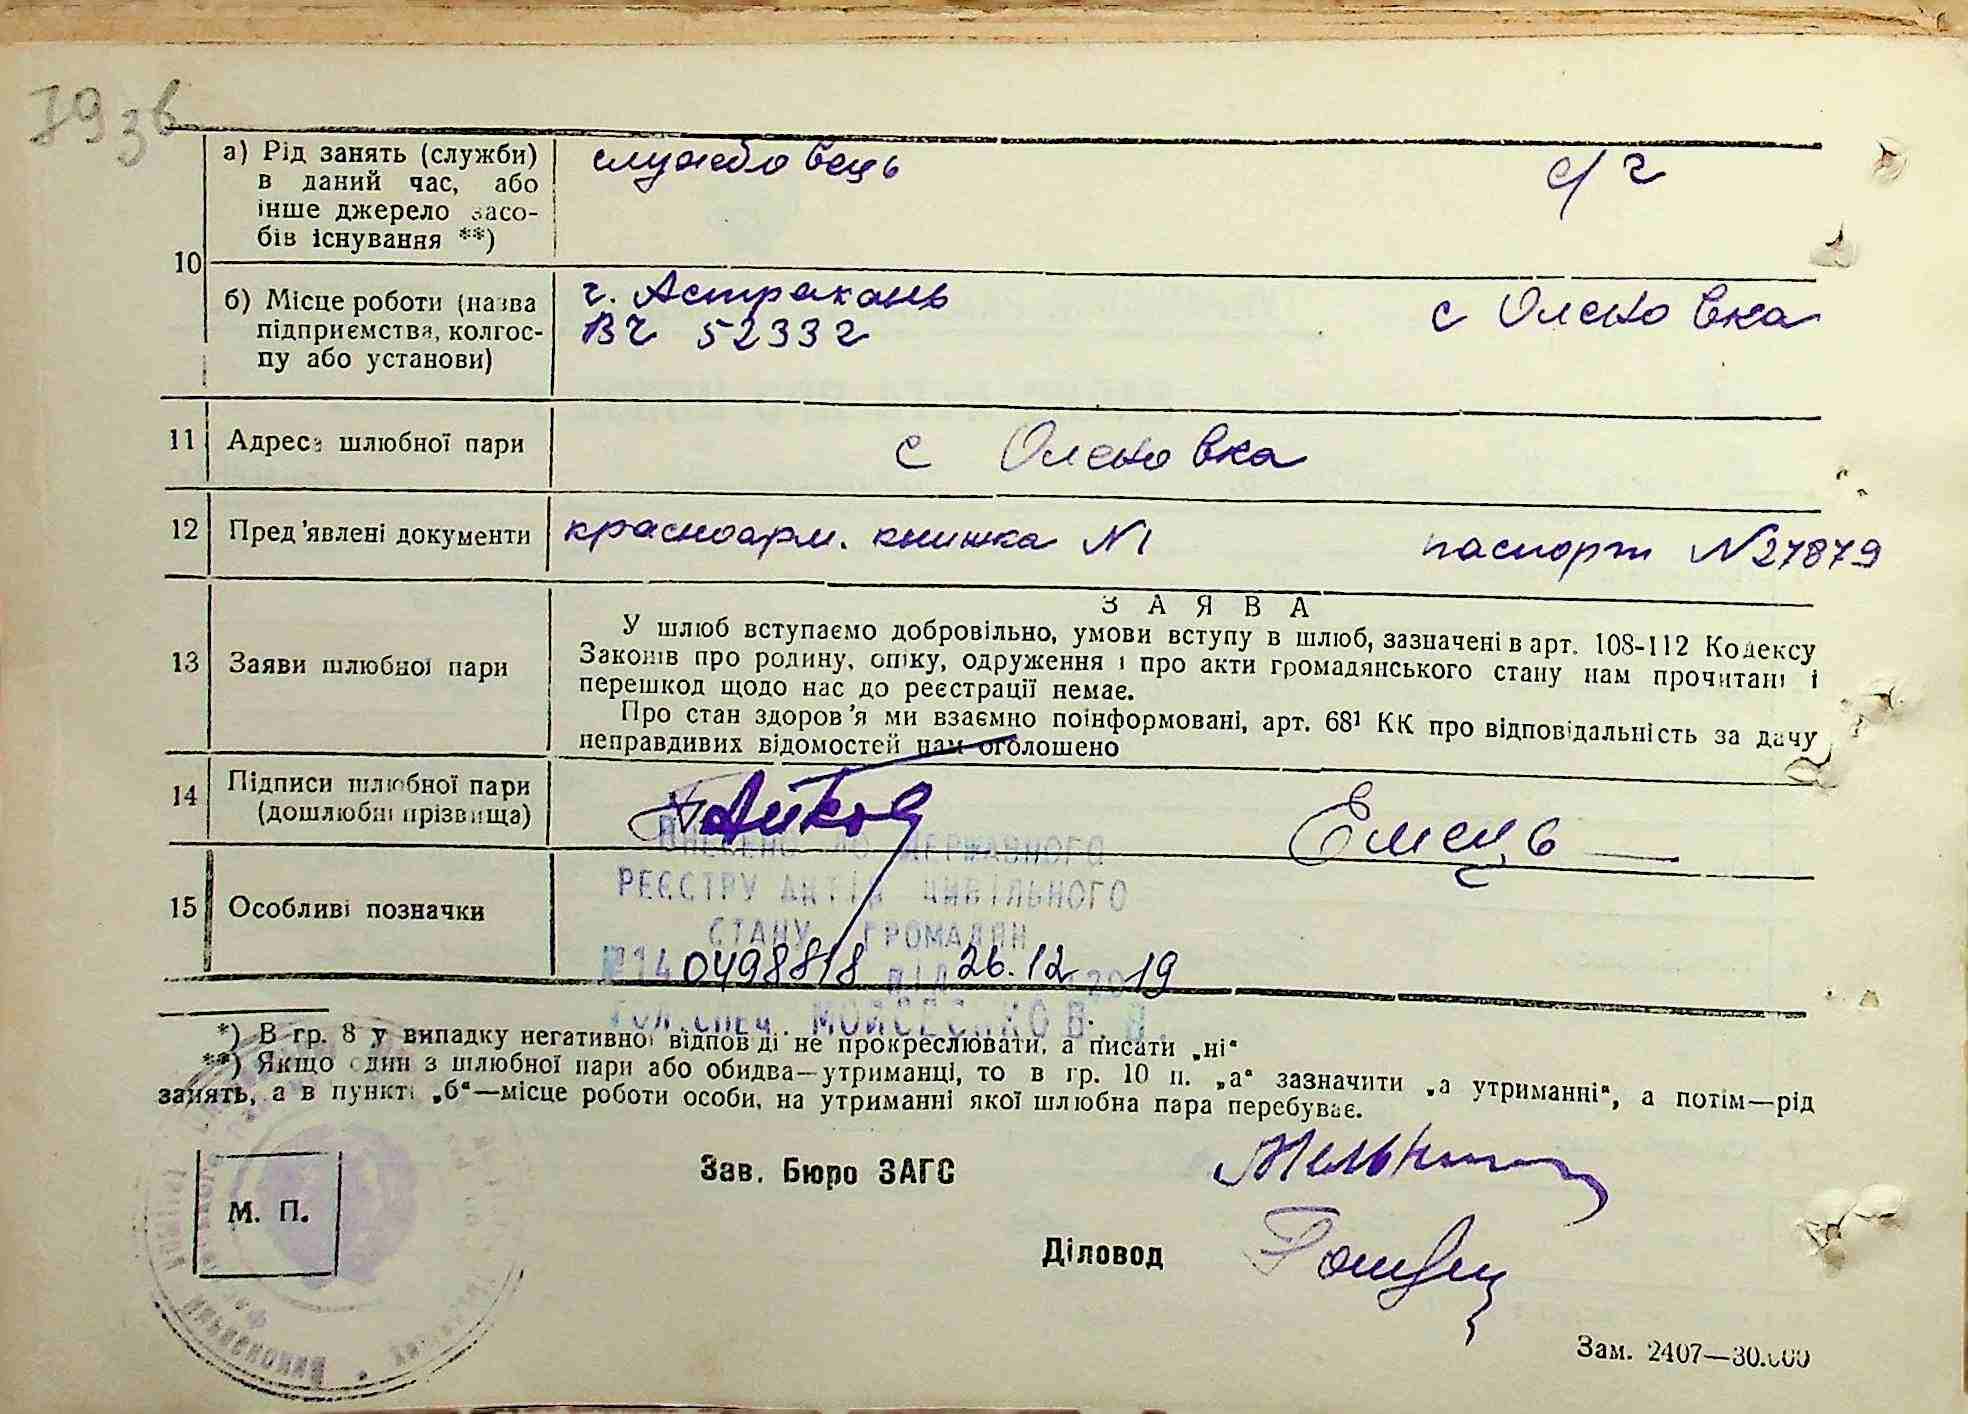 793в
10
а) Рід занять (служби)
в даний час, або
інше джерело засо-
бів існування **)
службовець
с/г
б) Місце роботи (назва
підприємства, колгос-
пу або установи)
г. Астрахань
ВЧ 52332
с Оленовка
11 Адреса шлюбної пари
с Оленовка
12 Пред'явлені документи
красноарм. книжка №
паспорт №27879
ЗАЯВА
13 Заяви шлюбної пари
У шлюб вступаємо добровільно, умови вступу в шлюб, зазначені в арт. 108-112 Кодексу
Законів про родину, опіку, одруження і про акти громадянського стану нам прочитані і
перешкод щодо нас до реєстрації немає.
Про стан здоров'я ми взаємно поінформовані, арт. 68¹ КК про відповідальність за дачу
неправдивих відомостей нам оголошено
14 Підписи шлюбної пари
(дошлюбні прізвища)
Емець
ВНЕСЕНО ДО ДЕРЖАВНОГО
РЕЄСТРУ АКТІВ ЦИВІЛЬНОГО
СТАНУ ГРОМАДЯН
15 Особливі позначки
№140498818 від 26.12 2019
ГОЛ.СПЕЦ. МОЙСЕЄНКО В. В.
*) В гр. 8 у випадку негативної відповіді не прокреслювати, а писати „ні“
**) Якщо один з шлюбної пари або обидва—утриманці, то в гр. 10 п. „а“ зазначити „а утриманні“, а потім—рід
занять, а в пункті „б“—місце роботи особи, на утриманні якої шлюбна пара перебуває.
Зав. Бюро ЗАГС
М. П.
Діловод
Зам. 2407—30.000